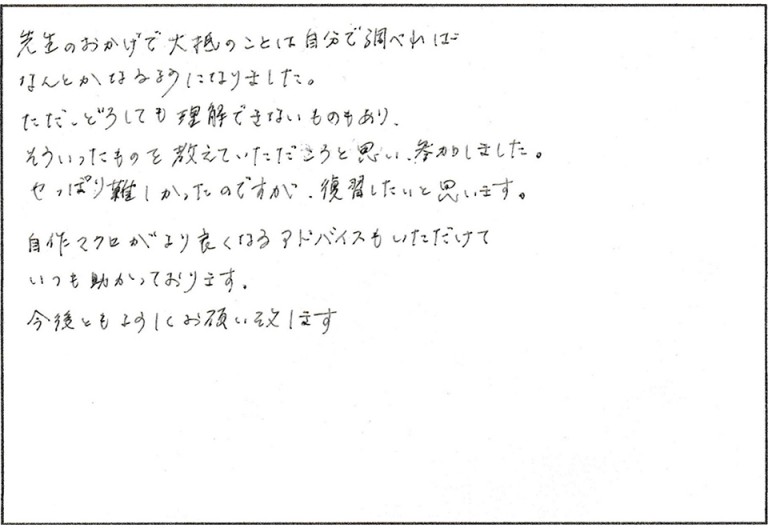 先生のおかげで大抵のことは自分で調べれば
なんとかなるようになりました。
ただ、どうしても理解できないものもあり、
そういったものを教えていただこうと思い、参加しました。
やっぱり難しかったのですが、復習したいと思います。
自作マクロがより良くなるアドバイスもいただけて
いつも助かっております。
今後ともよろしくお願い致します